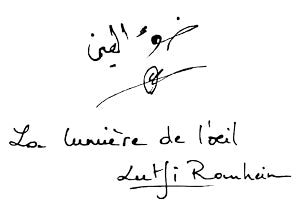 ضوء العين
La lumière de l'œil
Lutfi Romhein